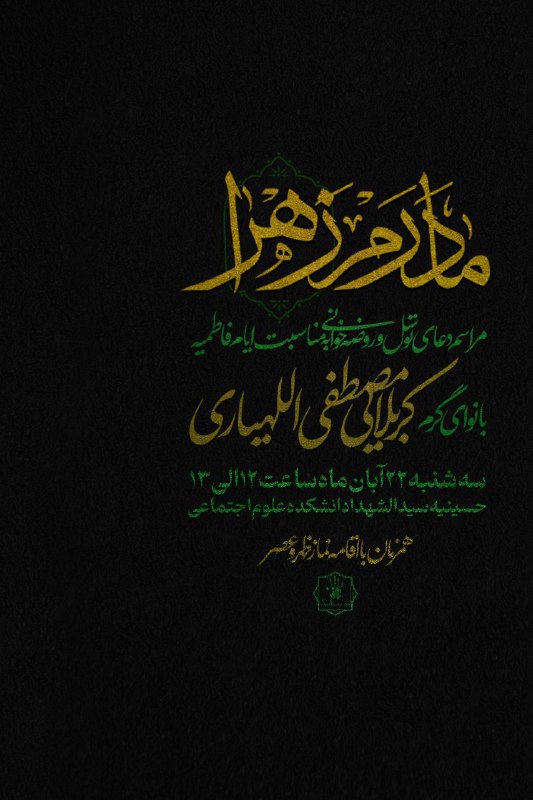 مادرم زهرا
مراسم دعای توسل و روضه خوانی به مناسبت ایام فاطمیه
بانوای گرم کربلایی مصطفی اللهیاری
سه شنبه ۲۲ آبان ماه ساعت ۱۲ الی ۱۳
حسینیه سیدالشهدا دانشکده علوم اجتماعی
همزمان با اقامه نماز ظهر و عصر